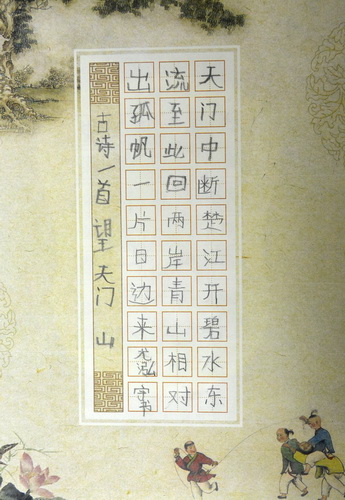 天门中断楚江开碧水东
流至此回两岸青山相对
出孤帆一片日边来尤泓宇书
古诗一首 望天门山